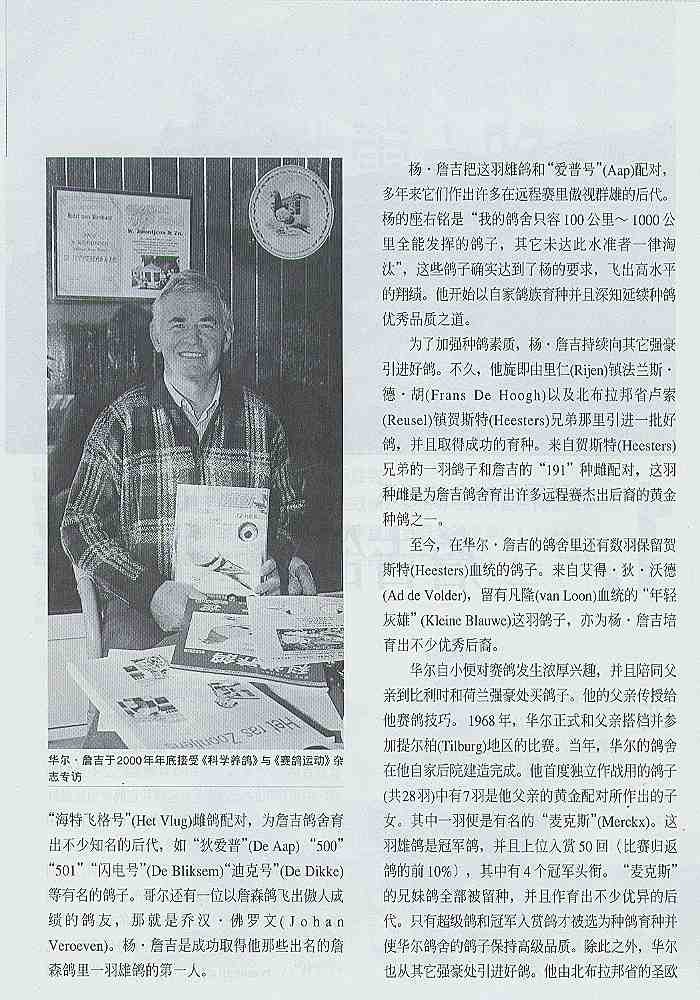 W. Zoontjens & Zn.
Het ras Zoontjens
华尔·詹吉于2000年年底接受《科学养鸽》与《赛鸽运动》杂
志专访
“海特飞格号”(Het Vlug)雌鸽配对，为詹吉鸽舍育
出不少知名的后代，如“狄爱普”(De Aap) “500”
“501” “闪电号”(De Bliksem)“迪克号”(De Dikke)
等有名的鸽子。哥尔还有一位以詹森鸽飞出傲人成
绩的鸽友，那就是乔汉·佛罗文(Johan
Veroeven)。杨·詹吉是成功取得他那些出名的詹
森鸽里一羽雄鸽的第一人。
杨·詹吉把这羽雄鸽和“爱普号”(Aap)配对，
多年来它们作出许多在远程赛里傲视群雄的后代。
杨的座右铭是“我的鸽舍只容100公里～1000公
里全能发挥的鸽子，其它未达此水准者一律淘
汰”，这些鸽子确实达到了杨的要求，飞出高水平
的翔绩。他开始以自家鸽族育种并且深知延续种鸽
优秀品质之道。
为了加强种鸽素质，杨·詹吉持续向其它强豪
引进好鸽。不久，他旋即由里仁(Rijen)镇法兰斯·
德·胡(Frans De Hoogh)以及北布拉邦省卢索
(Reusel)镇贺斯特(Heesters)兄弟那里引进一批好
鸽，并且取得成功的育种。来自贺斯特(Heesters)
兄弟的一羽鸽子和詹吉的“191”种雌配对，这羽
种雌是为詹吉鸽舍育出许多远程赛杰出后裔的黄金
种鸽之一。
至今，在华尔·詹吉的鸽舍里还有数羽保留贺
斯特(Heesters)血统的鸽子。来自艾得·狄·沃德
(Ad de Volder)，留有凡隆(van Loon)血统的“年轻
灰雄”(Kleine Blauwe)这羽鸽子，亦为杨·詹吉培
育出不少优秀后裔。
华尔自小便对赛鸽发生浓厚兴趣，并且陪同父
亲到比利时和荷兰强豪处买鸽子。他的父亲传授给
他赛鸽技巧。1968年，华尔正式和父亲搭档并参
加提尔柏(Tilburg)地区的比赛。当年，华尔的鸽舍
在他自家后院建造完成。他首度独立作战用的鸽子
(共28羽)中有7羽是他父亲的黄金配对所作出的子
女。其中一羽便是有名的“麦克斯”(Merckx)。这
羽雄鸽是冠军鸽，并且上位入赏50回〔比赛归返
鸽的前10%〕，其中有4个冠军头衔。“麦克斯”
的兄妹鸽全部被留种，并且作育出不少优异的后
代。只有超级鸽和冠军入赏鸽才被选为种鸽育种并
使华尔鸽舍的鸽子保持高级品质。除此之外，华尔
也从其它强豪处引进好鸽。他由北布拉邦省的圣欧